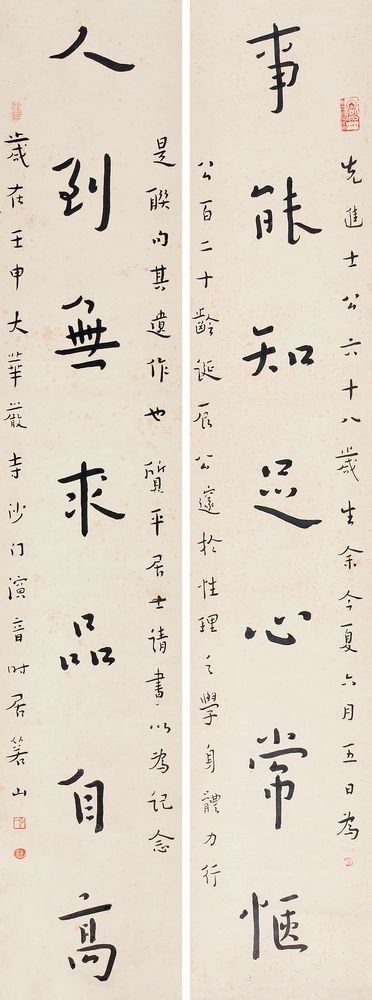 先進士公六十八歲生余今夏六月五日為
事能知足心常愜
公百二十齡誕辰公邃於性理之學身體力行
是聯句其遺作也質平居士請書以為記念
人到無求品自高
歲在壬申大華嚴寺沙門演音時居茖山